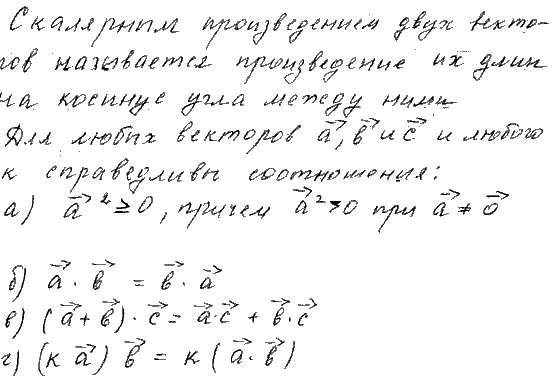 Скалярным произведением двух векто-
ров называется произведение их длин
на косинус угла между ними
Для любых векторов a⃗, b⃗ и c⃗ и любого
к справедливы соотношения:
а) a⃗ ² ≥ 0, причем a⃗ ² > 0 при a⃗ ≠ 0⃗
б) a⃗ · b⃗ = b⃗ · a⃗
в) (a⃗ + b⃗) · c⃗ = a⃗ · c⃗ + b⃗ · c⃗
г) (к a⃗) b⃗ = к (a⃗ · b⃗)